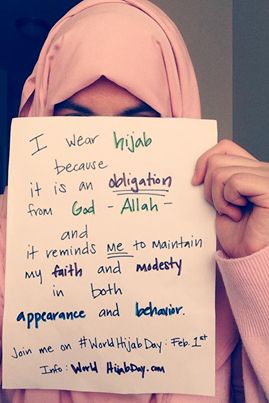 I wear hijab
because
it is an obligation
from God - Allah -
and
it reminds me to maintain
my faith and modesty
in both
appearance and behavior.
Join me on #WorldHijabDay: Feb. 1st
Info: World HijabDay.com